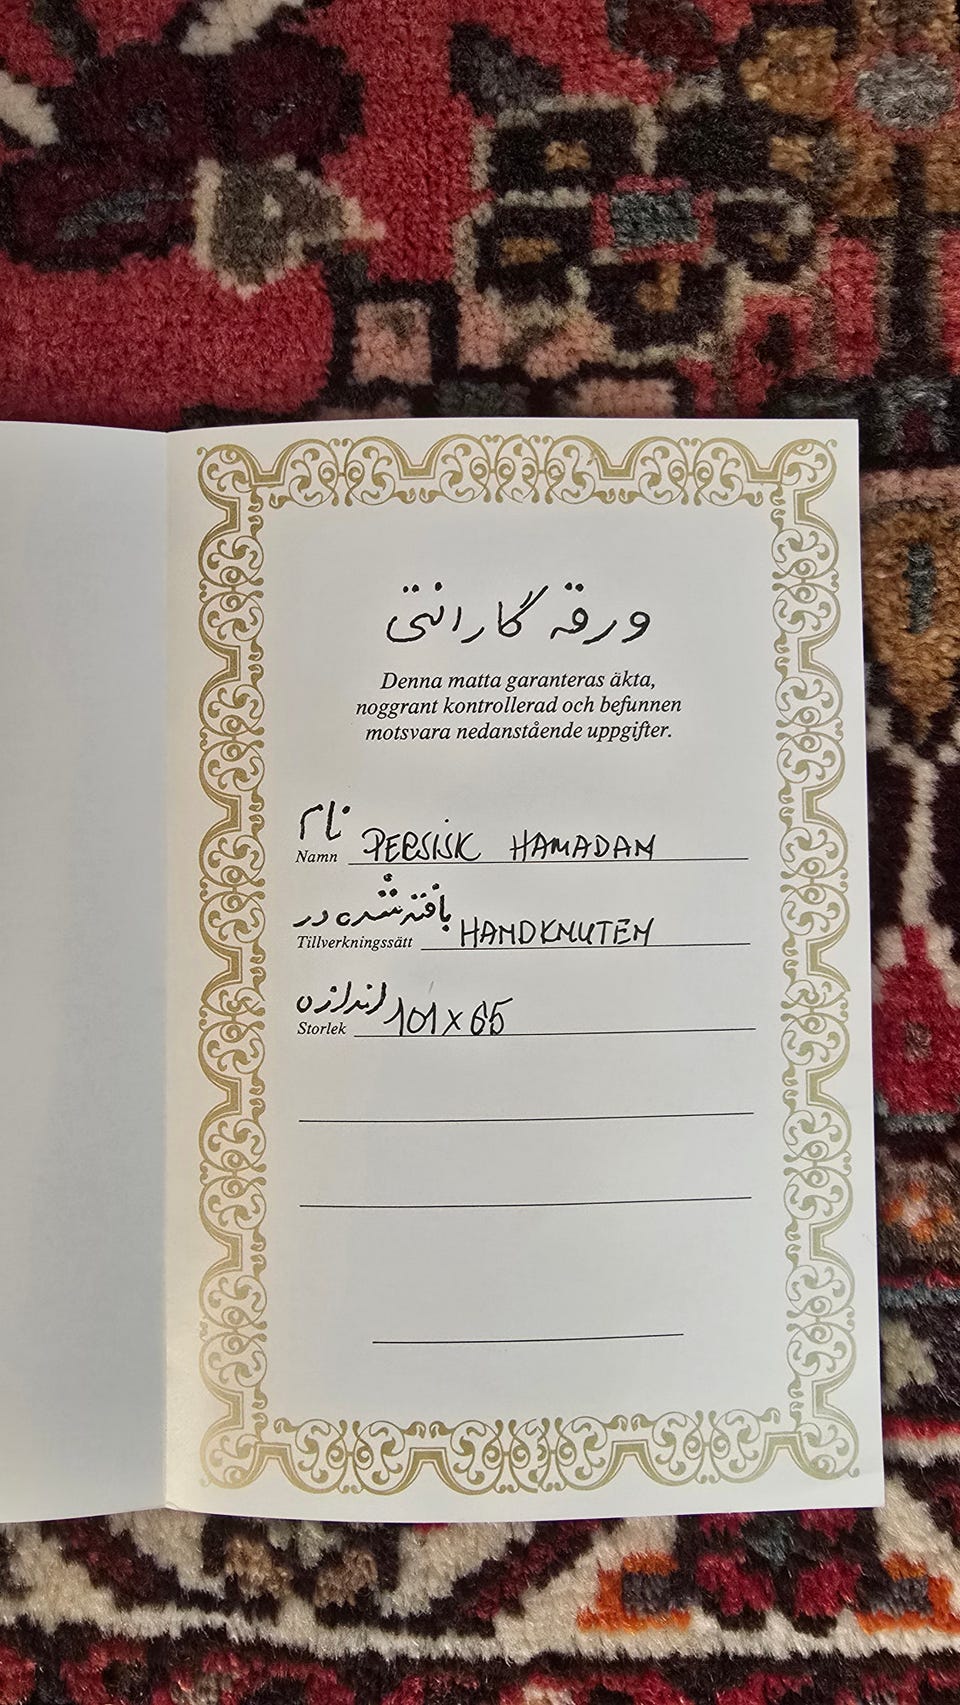 ورقه گارانتی
Denna matta garanteras äkta,
noggrant kontrollerad och befunnen
motsvara nedanstående uppgifter.
نام
Namn PERSISK HAMADAN
بافته شده در
Tillverkningssätt HANDKNUTEN
اندازه
Storlek 101 x 65